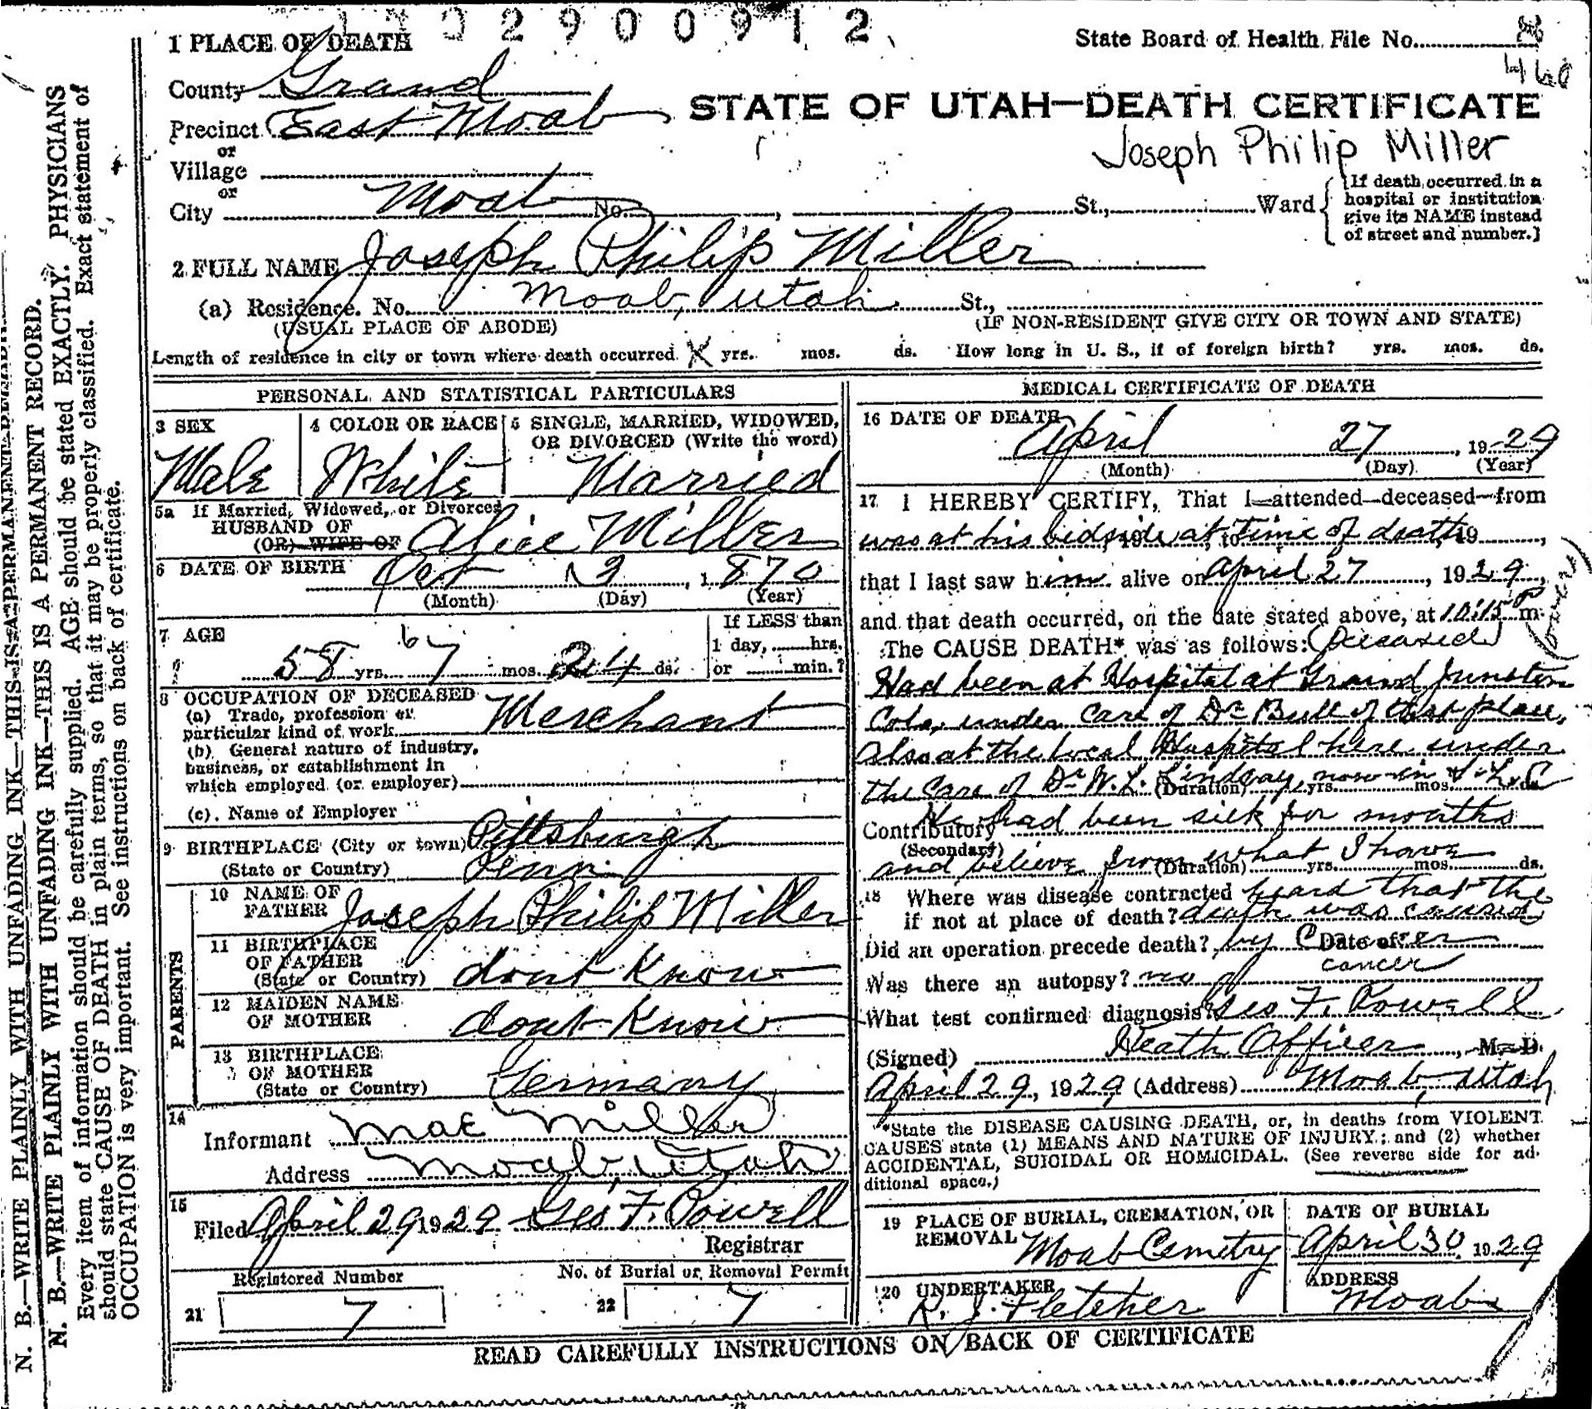 02900912
1 PLACE OF DEATH
State Board of Health File No.
460
County Grand
STATE OF UTAH—DEATH CERTIFICATE
Precinct East Moab
Joseph Philip Miller
or
Village
or
City Moab No. , St., Ward
[If death occurred in a
hospital or institution
give its NAME instead
of street and number.]
2 FULL NAME Joseph Philip Miller
(a) Residence. No. Moab, Utah St.,
(USUAL PLACE OF ABODE) (IF NON-RESIDENT GIVE CITY OR TOWN AND STATE)
Length of residence in city or town where death occurred. X yrs. mos. ds. How long in U. S., if of foreign birth? yrs. mos. ds.
PERSONAL AND STATISTICAL PARTICULARS
3 SEX
Male
4 COLOR OR RACE
White
5 SINGLE, MARRIED, WIDOWED,
OR DIVORCED (Write the word)
Married
5a If Married, Widowed, or Divorced
HUSBAND OF
(OR) WIFE OF Alice Miller
6 DATE OF BIRTH Oct 3, 1870
(Month) (Day) (Year)
7 AGE
58 yrs. 6 7 mos. 24 ds.
If LESS than
1 day, hrs.
or min.?
8 OCCUPATION OF DECEASED
(a) Trade, profession or
particular kind of work Merchant
(b) General nature of industry,
business, or establishment in
which employed (or employer)
(c) Name of Employer
9 BIRTHPLACE (City or town) Pittsburgh
(State or Country) Penn.
PARENTS
10 NAME OF
FATHER Joseph Philip Miller
11 BIRTHPLACE
OF FATHER
(State or Country) dont Know
12 MAIDEN NAME
OF MOTHER dont Know
13 BIRTHPLACE
OF MOTHER
(State or Country) Germany
14
Informant Mae Miller
Address Moab, Utah
15
Filed April 29 1929 Geo F. Powell
Registrar
Registered Number
21 7
No. of Burial or Removal Permit
22 7
MEDICAL CERTIFICATE OF DEATH
16 DATE OF DEATH
April 27, 1929
(Month) (Day) (Year)
17 I HEREBY CERTIFY, That I attended deceased from
was at his bidside at time of death, 19 ,
that I last saw him alive on April 27, 1929,
and that death occurred, on the date stated above, at 10:15 P m.
The CAUSE DEATH* was as follows: Deceased
Had been at Hospital at Grand Junction
Colo, under care of Dr Bull of that place,
also at the local Hospital here under
the care of Dr W. L. Lindsay, now in S. L. C
(Duration) yrs. mos. ds.
Contributory He had been sick for months
(Secondary)
and believe from what I have
(Duration) yrs. mos. ds.
18 Where was disease contracted heard that the
if not at place of death? death was caused
Did an operation precede death? by Cancer Date of
cancer
Was there an autopsy? no
What test confirmed diagnosis? Geo F. Powell
(Signed) Heath Officer, M. D.
April 29, 1929 (Address) Moab, Utah
*State the DISEASE CAUSING DEATH, or, in deaths from VIOLENT
CAUSES state (1) MEANS AND NATURE OF INJURY; and (2) whether
ACCIDENTAL, SUICIDAL OR HOMICIDAL. (See reverse side for ad-
ditional space.)
19 PLACE OF BURIAL, CREMATION, OR
REMOVAL Moab Cemetry
DATE OF BURIAL
April 30 1929
20 UNDERTAKER
R. J. Fletcher
ADDRESS
Moab
READ CAREFULLY INSTRUCTIONS ON BACK OF CERTIFICATE
N. B.—WRITE PLAINLY WITH UNFADING INK—THIS IS A PERMANENT RECORD.
N. B.—WRITE PLAINLY WITH UNFADING INK—THIS IS A PERMANENT RECORD.
Every item of information should be carefully supplied. AGE should be stated EXACTLY. PHYSICIANS
should state CAUSE OF DEATH in plain terms, so that it may be properly classified. Exact statement of
OCCUPATION is very important. See instructions on back of certificate.